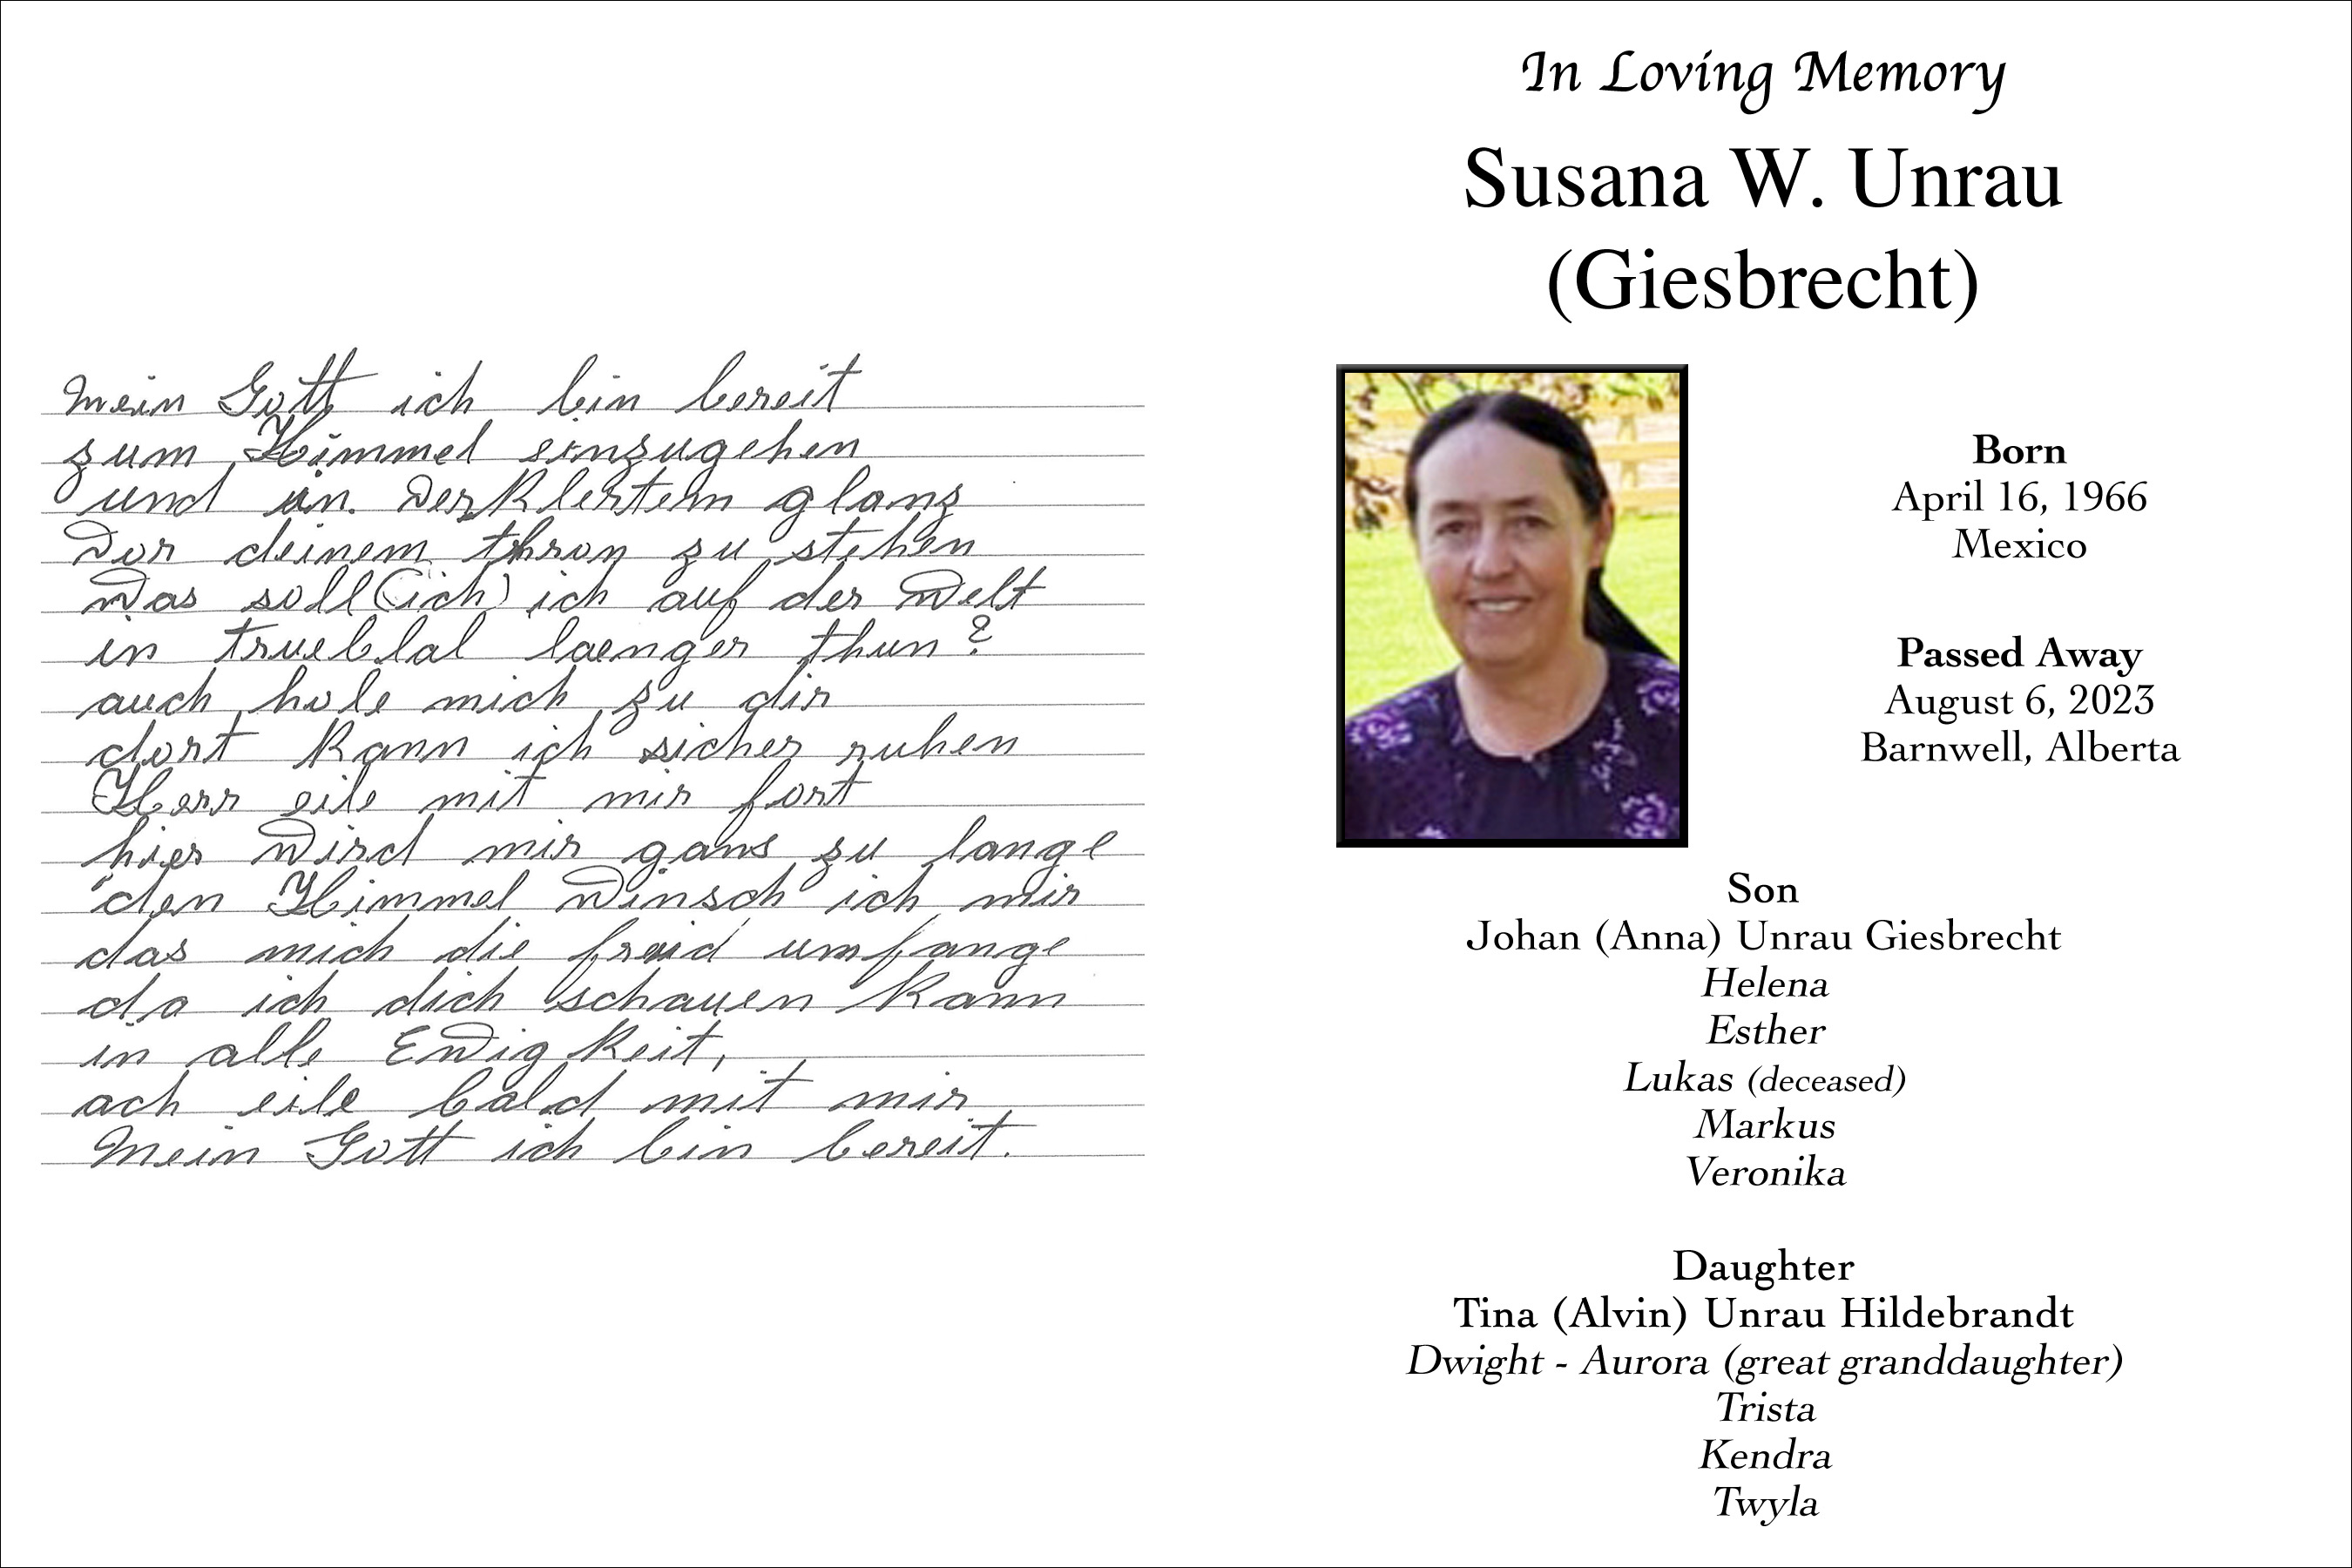 mein Gott ich bin bereit
zum Himmel einzugehen
und in verklertem glanz
vor deinem thron zu stehen
was soll (ich) ich auf der welt
in trueblal laenger thun?
auch hole mich zu dir
dort kann ich sicher ruhen
Herr eile mit mir fort
hier wird mir gans zu lange
den Himmel winsch ich mir
das mich die freid umfange
da ich dich schauen kann
in alle Ewigkeit,
ach eile bald mit mir
Mein Gott ich bin bereit.
In Loving Memory
Susana W. Unrau
(Giesbrecht)
Born
April 16, 1966
Mexico
Passed Away
August 6, 2023
Barnwell, Alberta
Son
Johan (Anna) Unrau Giesbrecht
Helena
Esther
Lukas (deceased)
Markus
Veronika
Daughter
Tina (Alvin) Unrau Hildebrandt
Dwight - Aurora (great granddaughter)
Trista
Kendra
Twyla